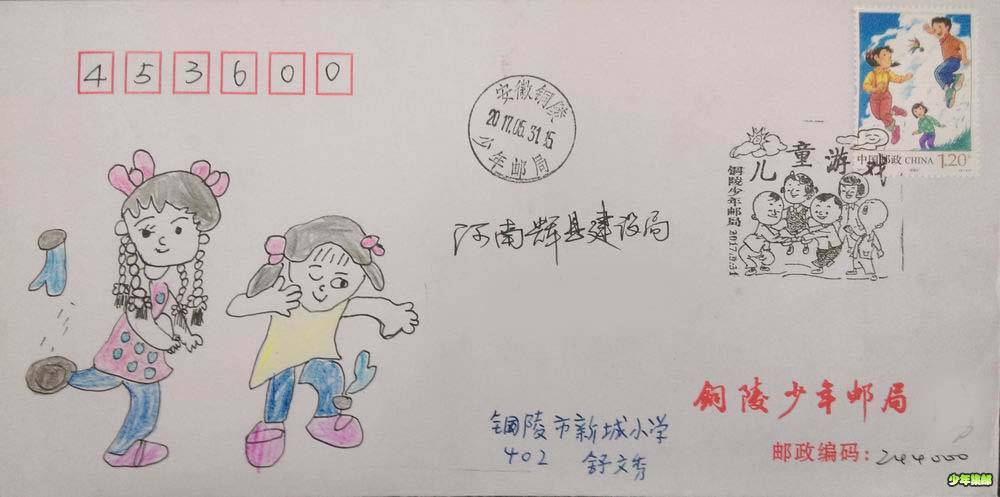 453600
安徽铜陵
2017.05.31.15
少年邮局
中国邮政 CHINA 1.20
儿童游戏
铜陵少年邮局2017.5.31
河南辉县建设局
铜陵少年邮局
邮政编码：244000
铜陵市新城小学
402 舒文秀
少年集邮